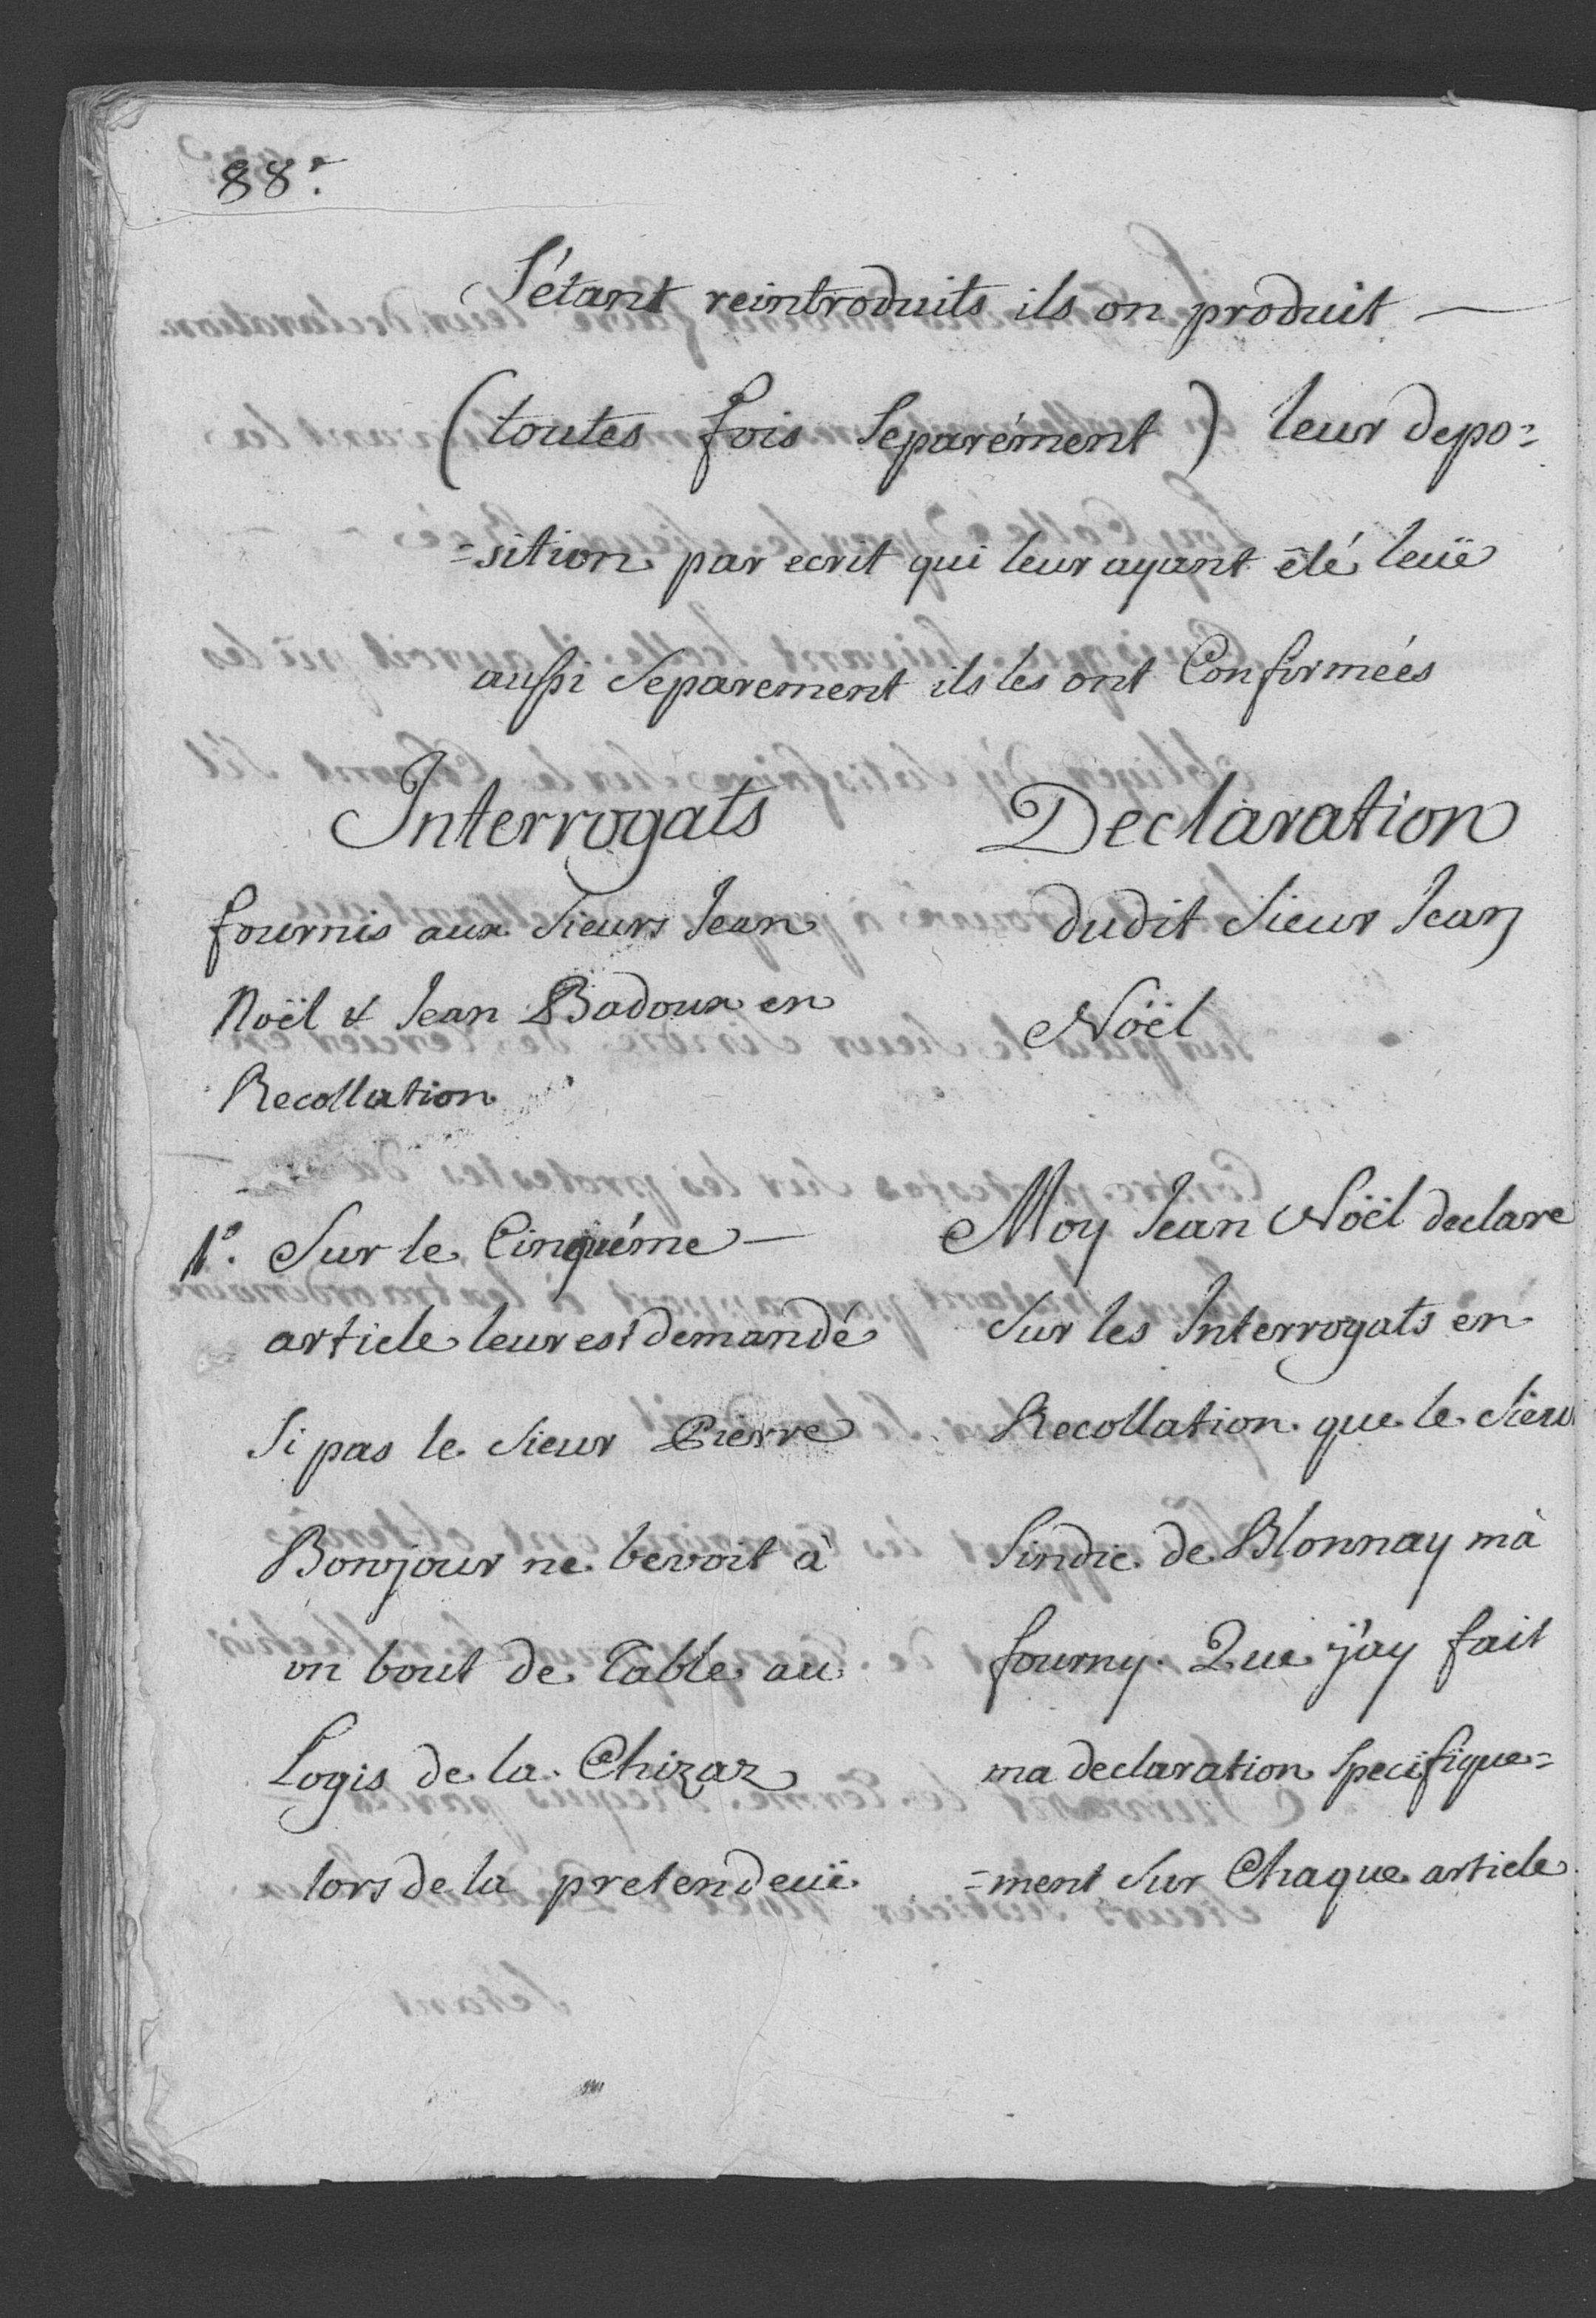 88.e
S'étant reintroduits ils on produit —
(toutes fois Separément) leur depo=
=sition par ecrit qui leur ayant êté leüe
aussi Separement ils les ont Confirmées
Interrogats
fournis aux Sieurs Jean
Noël & Jean Badoux en
Recollation
1°. Sur le Cinquéme —
article leur est demandé
Si pas le Sieur Pierre
Bonjour ne bevoit à
un bout de Table au
Logis de la Chizaz
lors de la pretendeüe
Declaration
dudit Sieur Jean
Noël
Moy Jean Noël declare
Sur les Interrogats en
Recollation que le Sieur
Sindic de Blonnay mà
fourny. Que j'ay fait
ma declaration Specifique=
=ment Sur Chaque article